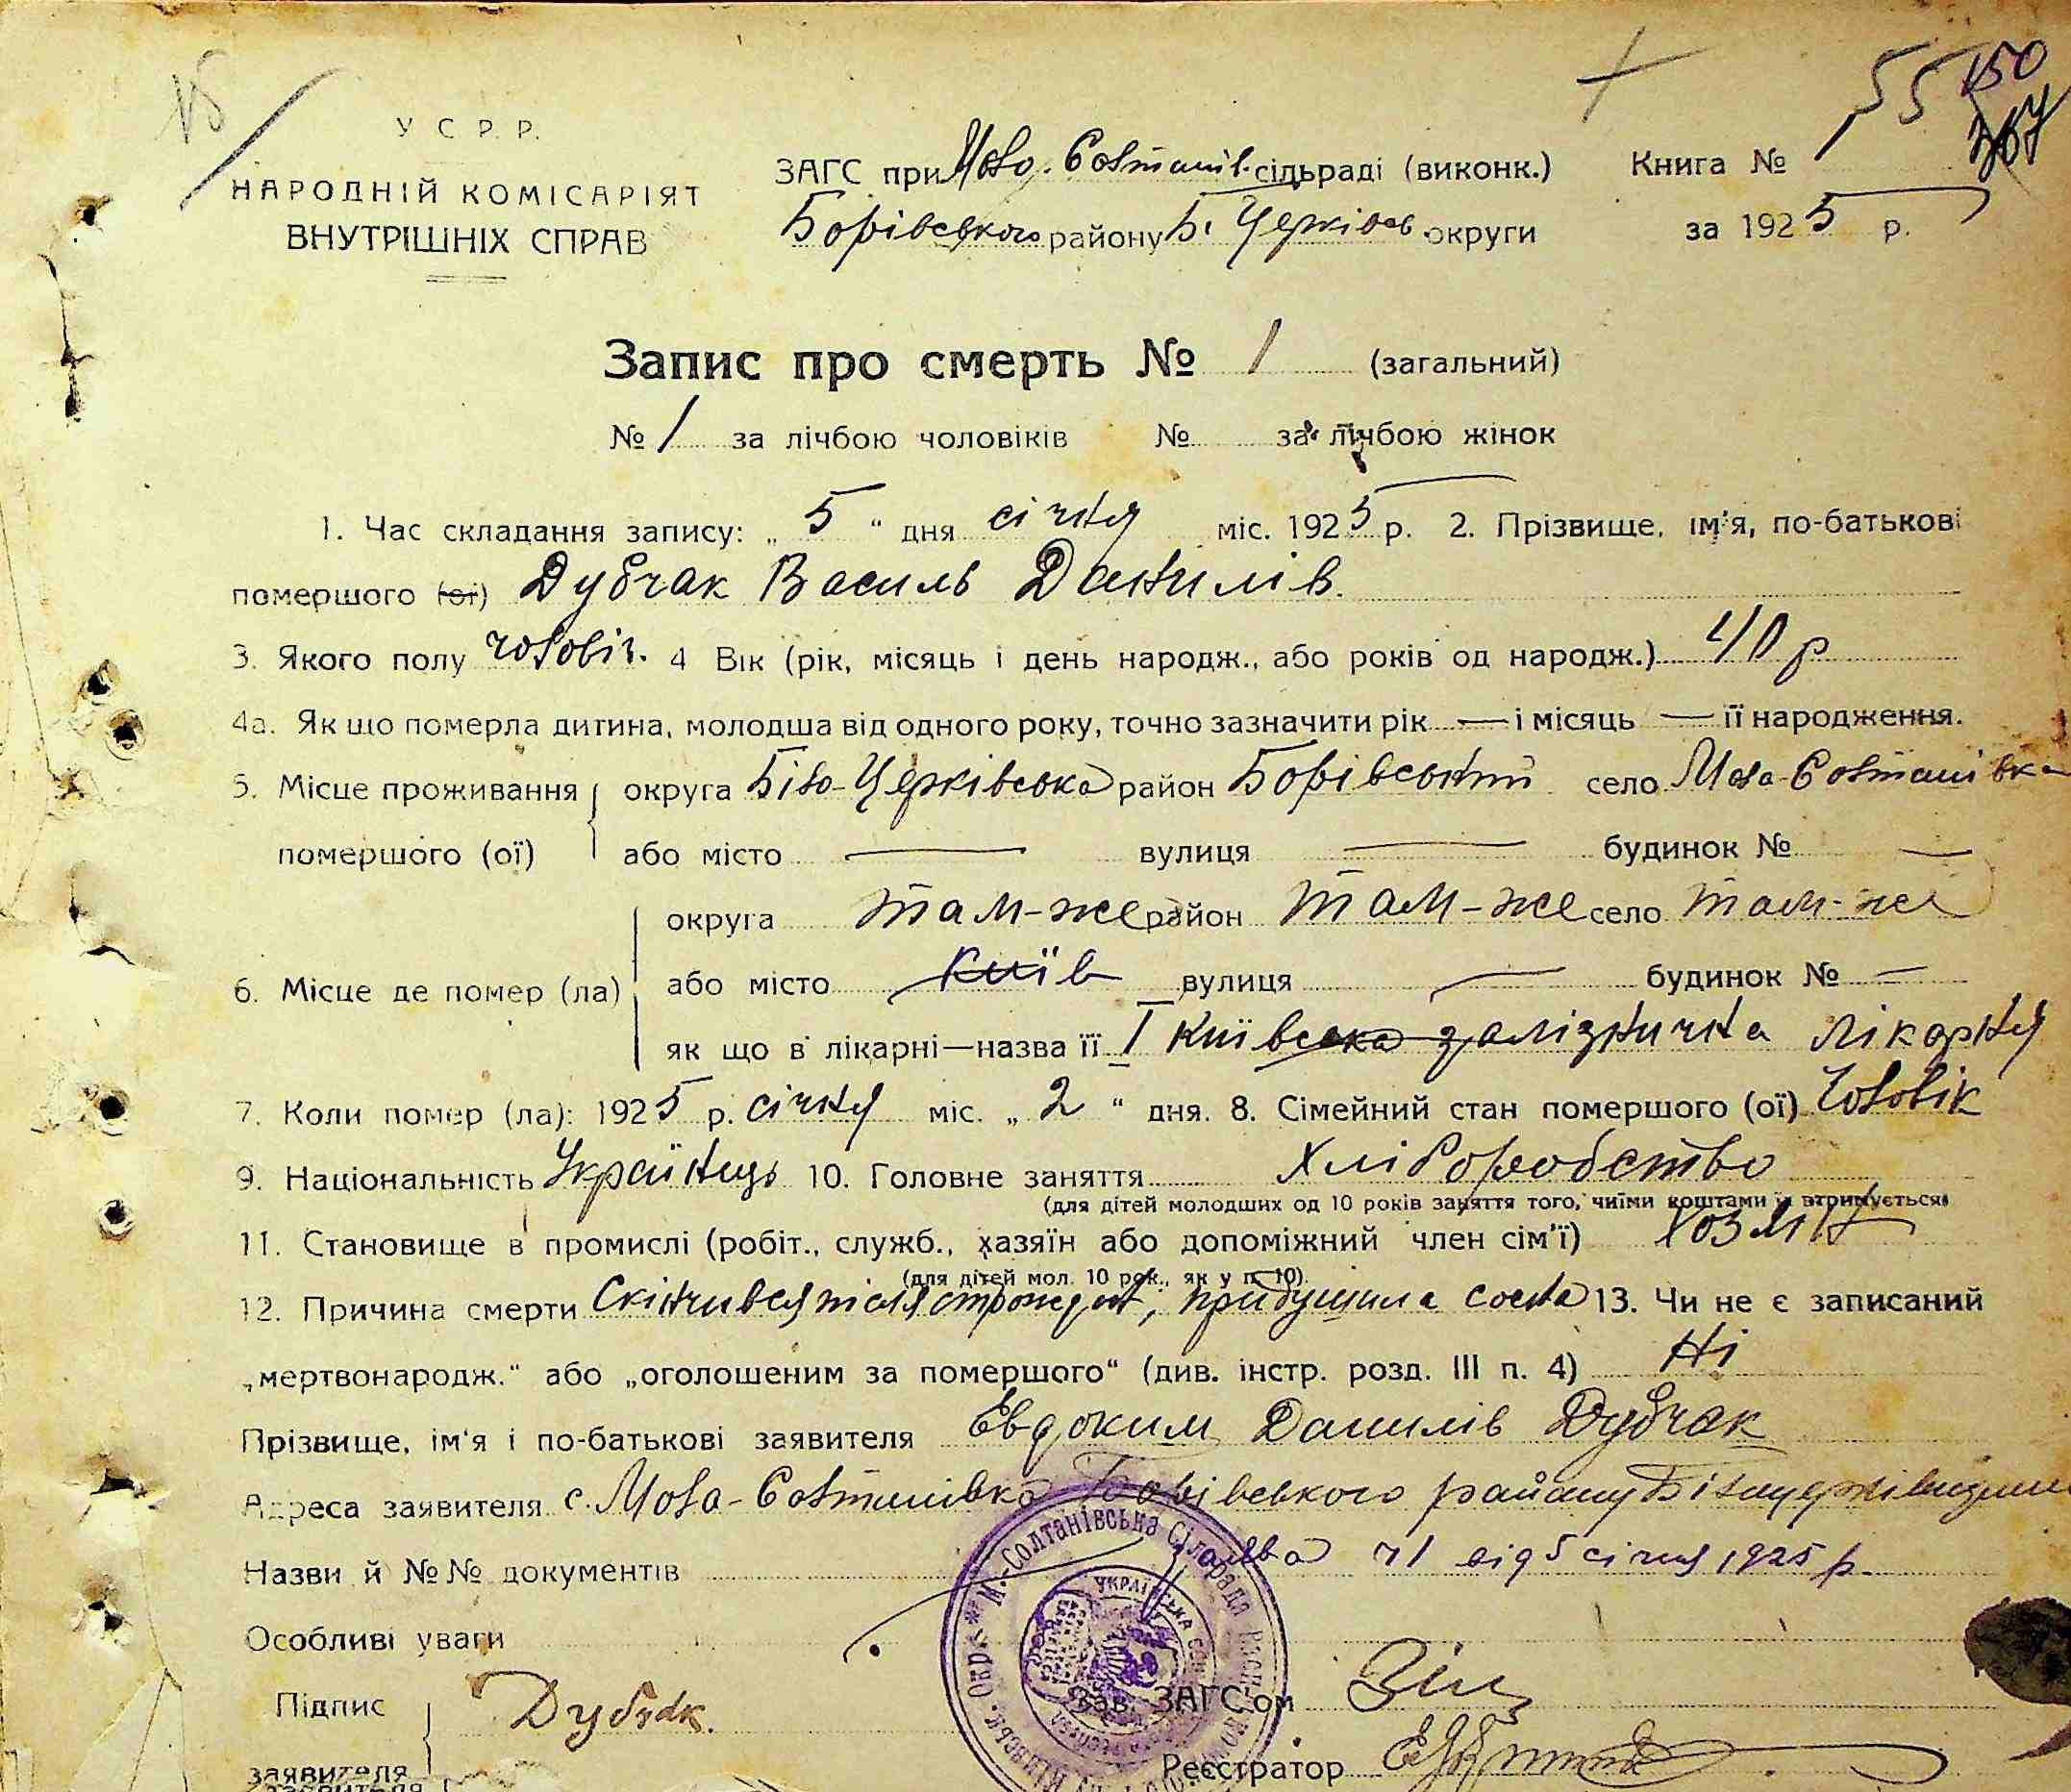 15
55 150
367
У С Р. Р.
НАРОДНІЙ КОМІСАРІЯТ
ВНУТРІШНІХ СПРАВ
ЗАГС при Мало-Солтанів. сільраді (виконк.) Книга №
Борівського району Б. Церківс. округи за 1925 р.
Запис про смерть № 1 (загальний)
№ 1 за лічбою чоловіків № за лічбою жінок
1. Час складання запису: „5" дня січня міс. 1925 р. 2. Прізвище, ім'я, по-батькові
помершого (ої) Дубчак Василь Данилів.
3. Якого полу чоловіч. 4 Вік (рік, місяць і день народж., або років од народж.) 40 р
4а. Як що померла дитина, молодша від одного року, точно зазначити рік — і місяць — її народження.
5. Місце проживання округа Біло-Церківська район Борівський село Мала-Солтанівка
помершого (ої) або місто — вулиця — будинок № —
округа там-же район там-же село там-же
6. Місце де помер (ла) або місто Київ вулиця — будинок № —
як що в лікарні—назва її I Київська залізнична лікарня
7. Коли помер (ла): 1925 р. січня міс. „2" дня. 8. Сімейний стан помершого (ої) Чоловік
9. Національність Українець 10. Головне заняття Хліборобство
(для дітей молодших од 10 років заняття того, чиїми коштами їх втримується)
11. Становище в промислі (робіт., служб., хазяїн або допоміжний член сім'ї) Хозяїн
(для дітей мол. 10 рок., як у п. 10).
12. Причина смерти Скінчився після придушила сосна 13. Чи не є записаний
„мертвонародж." або „оголошеним за помершого" (див. інстр. розд. III п. 4) Ні
Прізвище, ім'я і по-батькові заявителя Евдоким Данилів Дубчак
Адреса заявителя с. Мала-Солтанівка Борівського району
Назви й №№ документів ч 1 від 5 січня 1925 р.
Особливі уваги
Підпис Дубчак. Зав. ЗАГС'ом
заявителя Реєстратор
М.-Солтанівська Сільрада